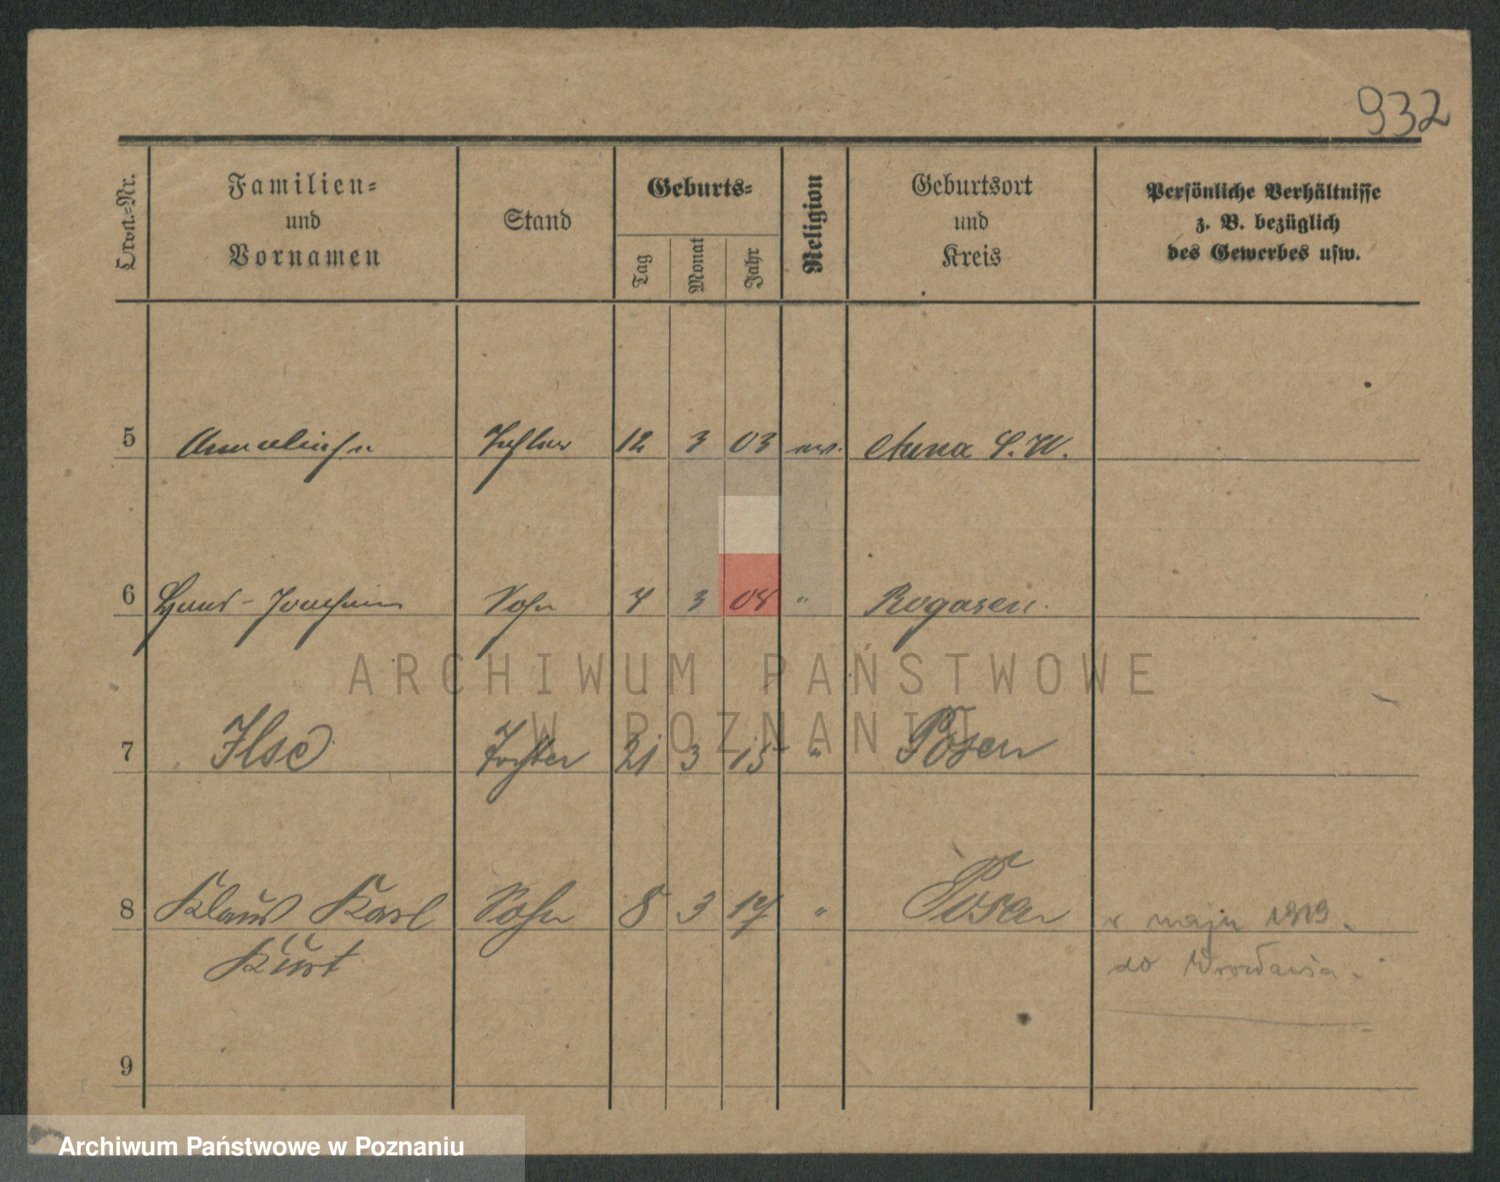 932
Ordn.-Nr.
Familien-
und
Vornamen
Stand
Geburts-
Tag
Monat
Jahr
Religion
Geburtsort
und
Kreis
Persönliche Verhältnisse
z. B. bezüglich
des Gewerbes usw.
5 Anneliese Tochter 12 3 03 ev. S. W.
6 Hans-Joachim Sohn 4 3 08 " Rogasen.
ARCHIWUM PAŃSTWOWE
W POZNANIU
7 Ilse Tochter 21 3 15 " Posen
8 Klaus Karl Sohn 8 3 17 " Posen w maju 1919.
Kurt do Wrocławia.
9
Archiwum Państwowe w Poznaniu